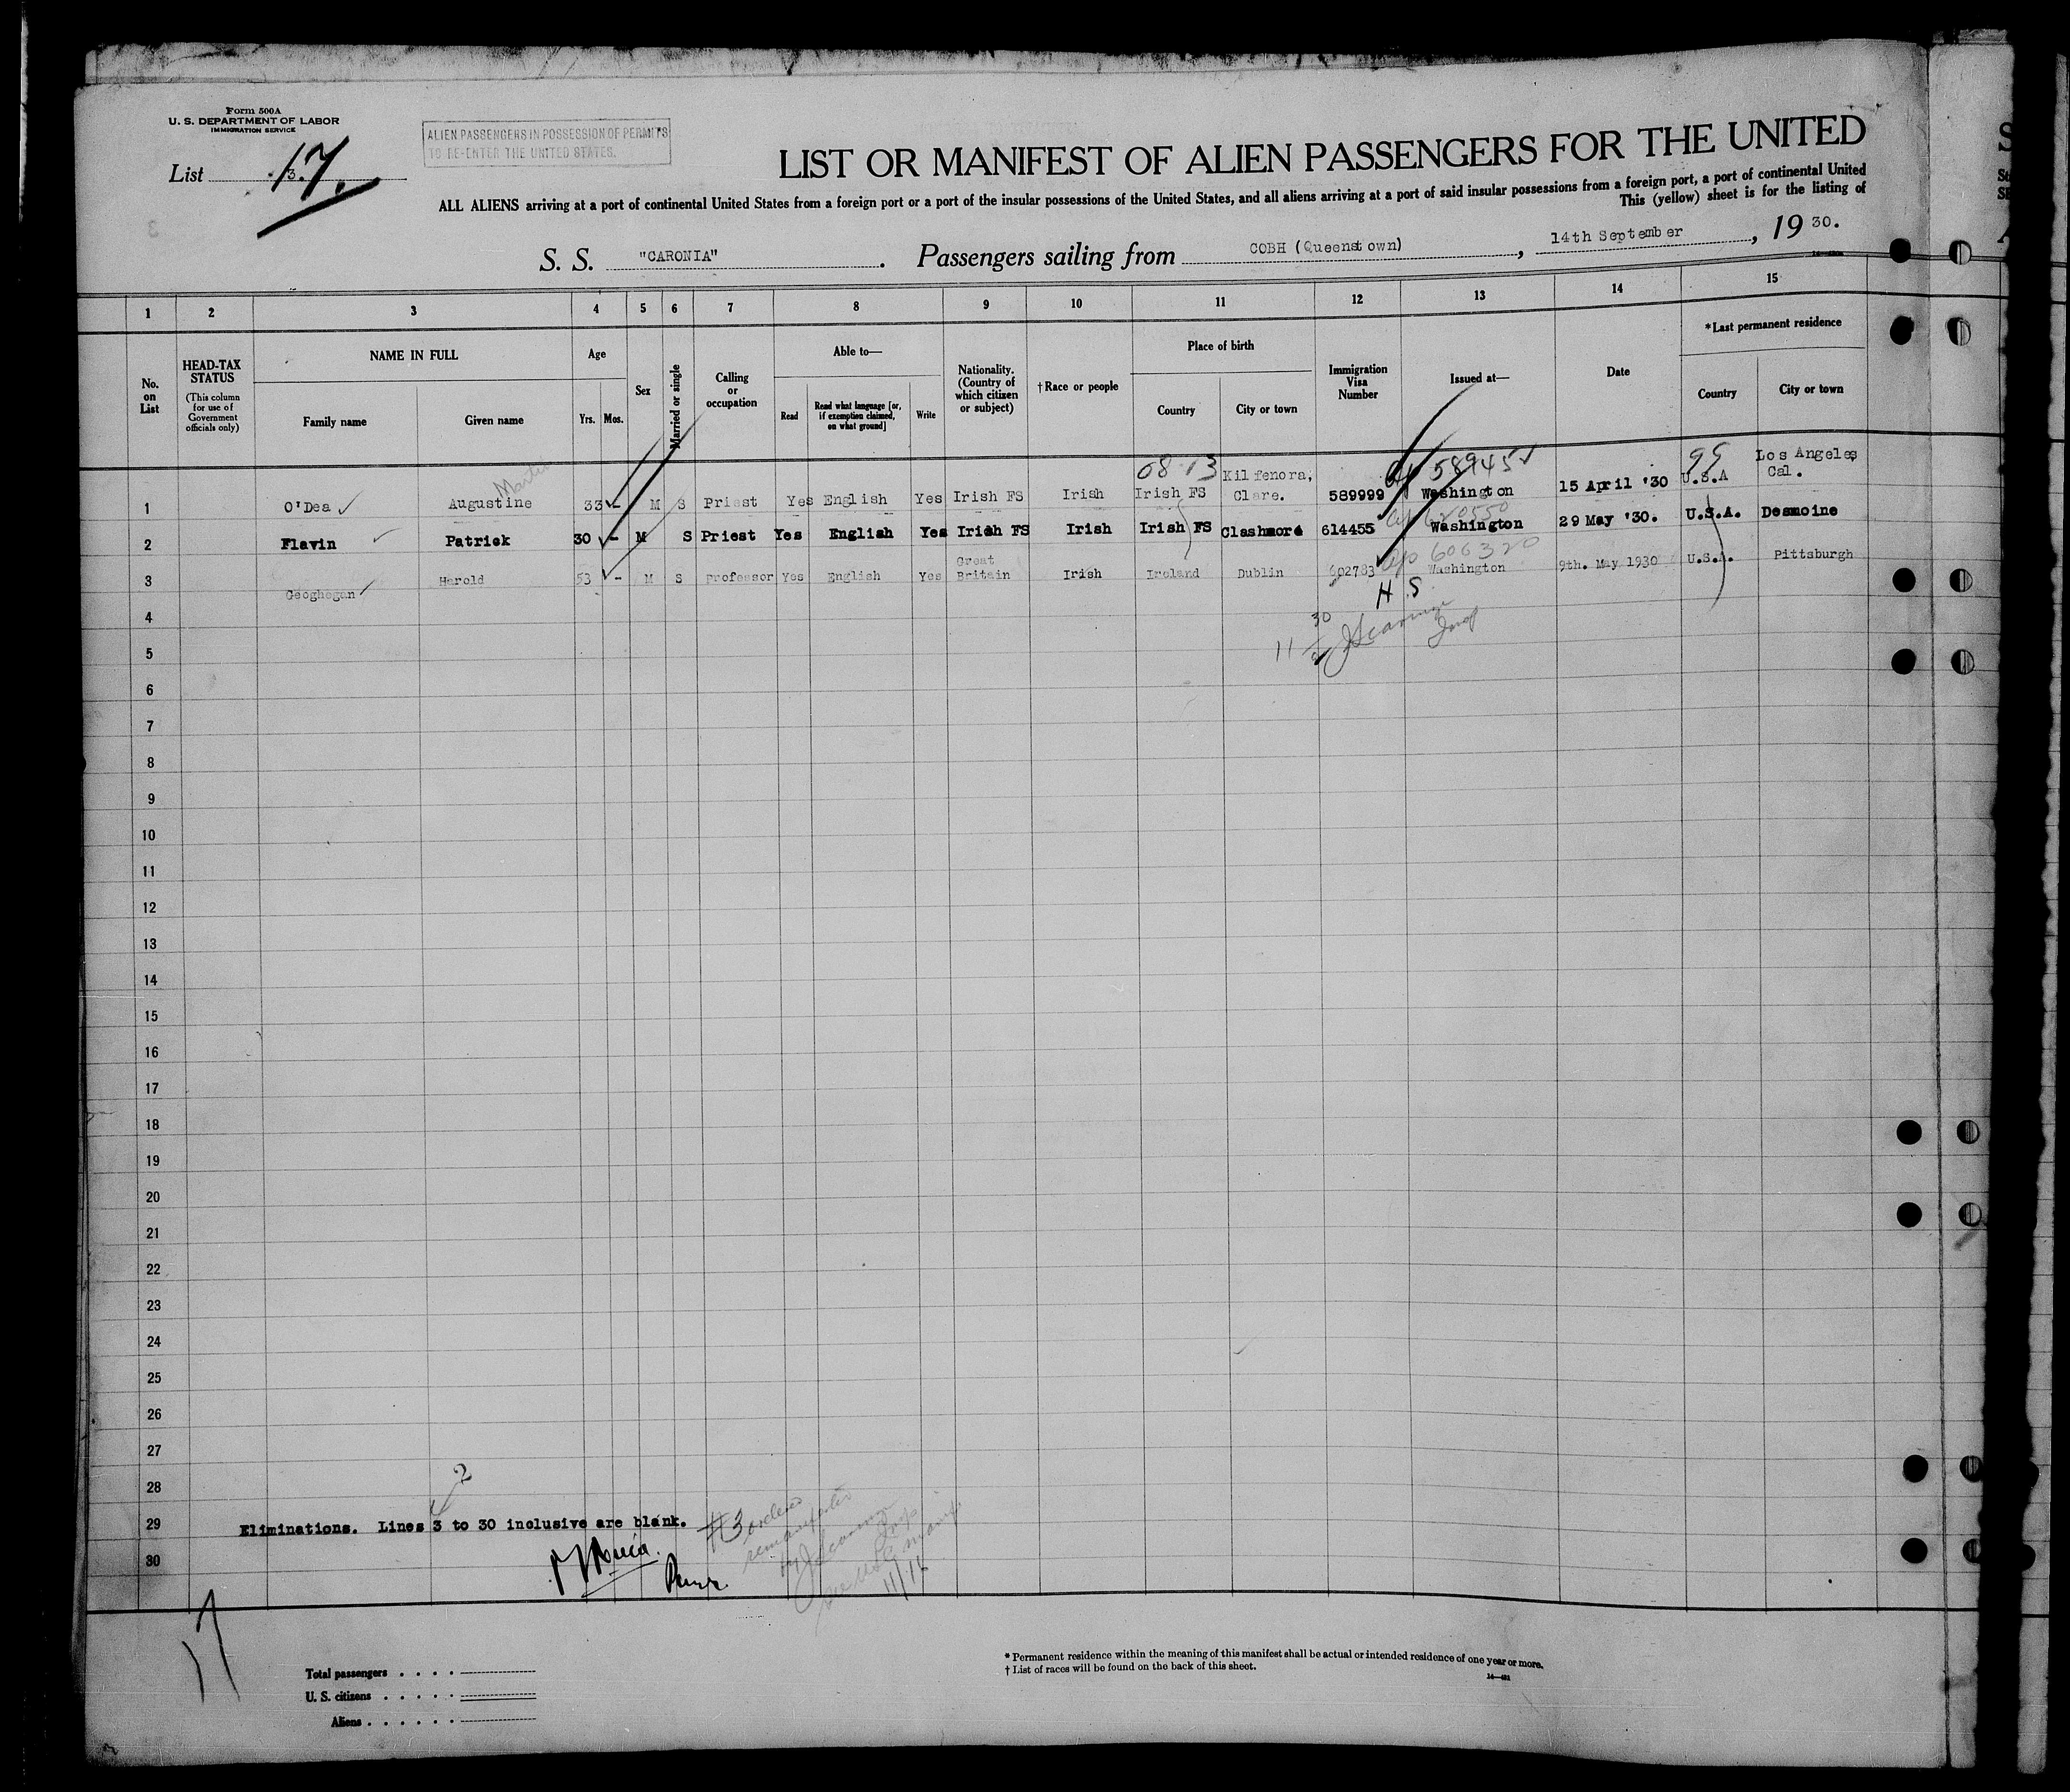 Form 500A
U. S. DEPARTMENT OF LABOR
IMMIGRATION SERVICE
List 3. 17.
ALIEN PASSENGERS IN POSSESSION OF PERMITS
TO RE-ENTER THE UNITED STATES.
LIST OR MANIFEST OF ALIEN PASSENGERS FOR THE UNITED
ALL ALIENS arriving at a port of continental United States from a foreign port or a port of the insular possessions of the United States, and all aliens arriving at a port of said insular possessions from a foreign port, a port of continental United
This (yellow) sheet is for the listing of
S. S. "CARONIA". Passengers sailing from COBH (Queenstown), 14th September, 19 30.
1 2 3 4 5 6 7 8 9 10 11 12 13 14 15
No. on List
HEAD-TAX STATUS (This column for use of Government officials only)
NAME IN FULL
Family name Given name
Age
Yrs. Mos.
Sex
Married or single
Calling or occupation
Able to—
Read Read what language [or, if exemption claimed, on what ground] Write
Nationality. (Country of which citizen or subject)
†Race or people
Place of birth
Country City or town
Immigration Visa Number
Issued at—
Date
*Last permanent residence
Country City or town
Martin 08 13 589451 99
1 O'Dea Augustine 33 - M S Priest Yes English Yes Irish FS Irish Irish FS Kilfenora, Clare. 589999 Washington 15 April '30 U.S.A Los Angeles, Cal.
620550
2 Flavin Patrick 30 - M S Priest Yes English Yes Irish FS Irish Irish FS Clashmore 614455 Washington 29 May '30. U.S.A. Desmoine
606320
3 Geoghegan Harold 53 - M S Professor Yes English Yes Great Britain Irish Ireland Dublin 602783 Washington 9th. May 1930 U.S.A. Pittsburgh
H.S.
30
11
4
5
6
7
8
9
10
11
12
13
14
15
16
17
18
19
20
21
22
23
24
25
26
27
28
2
29 Eliminations. Lines 3 to 30 inclusive are blank.
#3
30
11/16
17
Total passengers
U. S. citizens
Aliens
* Permanent residence within the meaning of this manifest shall be actual or intended residence of one year or more.
† List of races will be found on the back of this sheet.